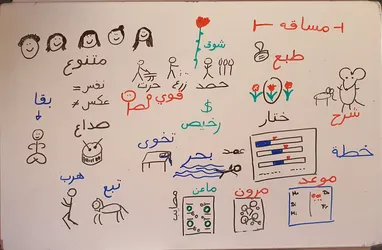 مسافه
شوك
طبع
متنوع
حصد
زرع
حرث
نفس =
عكس ≠
قوي
$
رخيص
ختار
شرح
بقا
صداع
تخوى
بحر
عمد
خطة
هرب
تبع
مطالب
ماعن
مرون
موعد